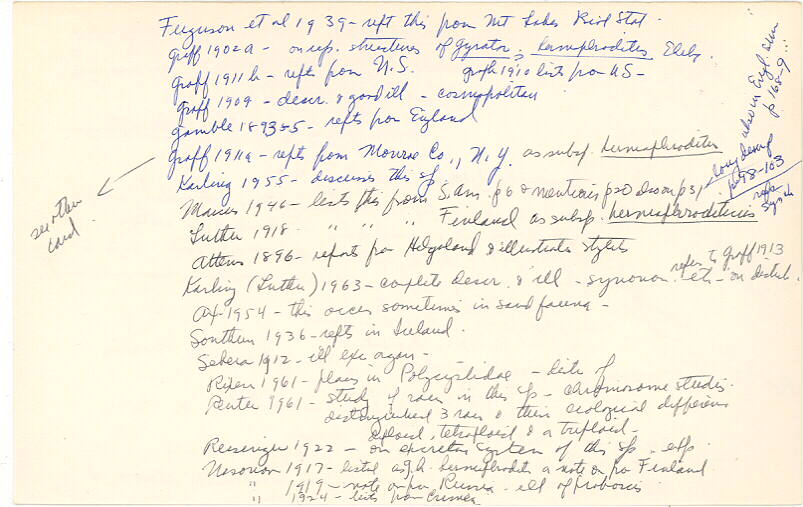 Ferguson et al 1939 - rept this from Mt Lake Biol Stat.
Graff 1902a - on rep. structures of Gyrator, hermaphroditus Ehrbg.
Graff 1911b - repts from N.S. Graff 1910 lists from US -
Graff 1909 - descr. & good ill - cosmopolitan
Gamble 1893 - repts from England
Graff 1911a - repts from Monroe Co., N.Y. as subsp. hermaphroditus
Karling 1955 - discusses this sp
Marcus 1946 - lists this from S. Am. p 6 & mentions p 20
Luther 1918 - " " " Finland as subsp. hermaphroditicus
Attems 1896 - reports from Helgoland & illustrates stylets
Karling (Luther) 1963 - complete descr. & ill - synonom. etc - on distrib.
refers to Graff 1913
Ax 1954 - this occurs sometimes in sand fauna -
Southern 1936 - repts in Ireland.
Sekera 1912 - ill exc organ -
Rixen 1961 - places in Polycystidae - lists
Reuter 1961 - study of races in this sp - chromosome studies.
distinguished 3 races & their ecological differences
diploid, tetraploid & a triploid -
Reisinger 1922 - on excretory system of this sp -
Nasonov 1917 - listed as g. h. hermaphroditus a note on from Finland
" 1919 - note on from Russia - ill of proboscis
" 1924 - lists from Crimea
see other
card
also in Engl
p 168-9
long descrip
p 98-103